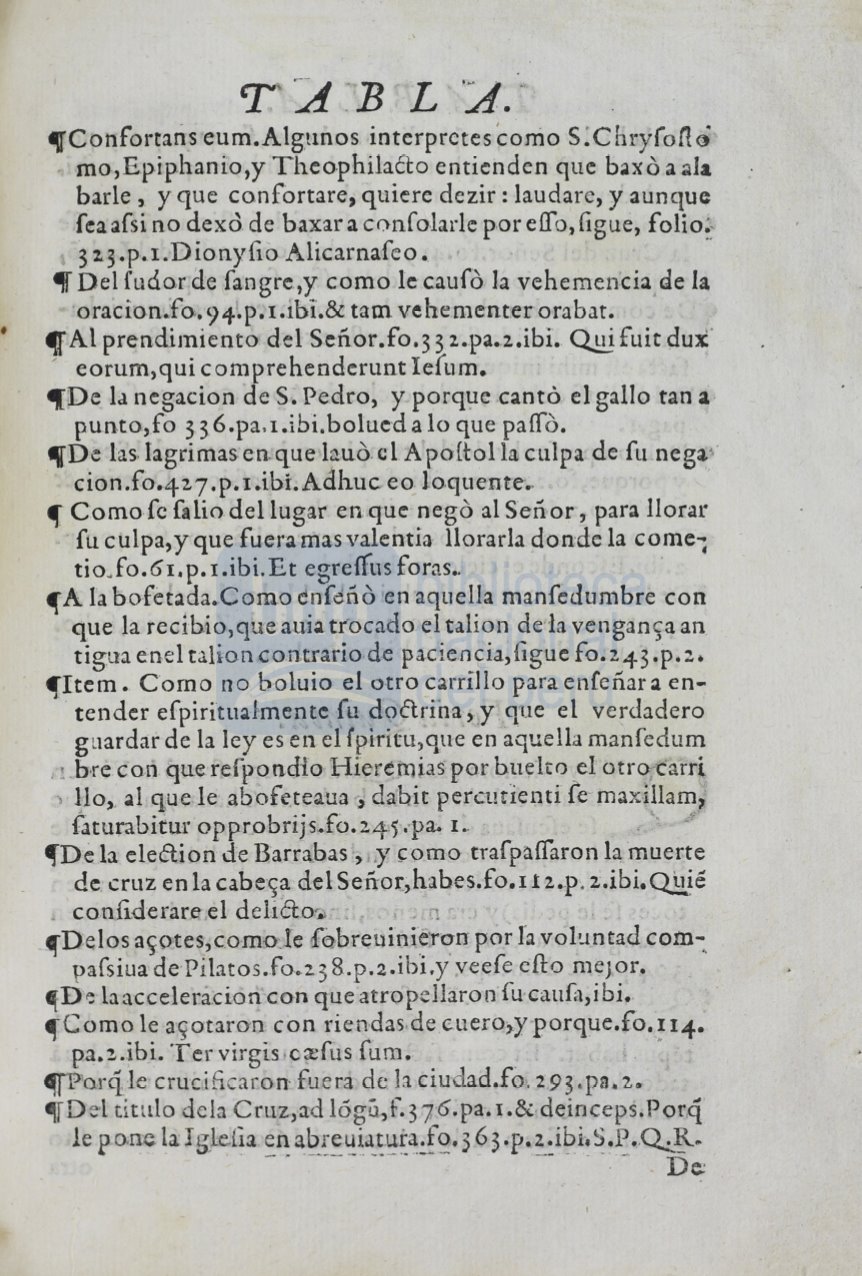 TABLA.
¶Confortans eum.Algunos interpretes como S.Chryſoſto
mo,Epiphanio,y Theophilacto entienden que baxò a ala
barle, y que confortare, quiere dezir: laudare, y aunque
ſea aſsi no dexò de baxar a conſolarle por eſſo, ſigue, folio.
323.p.1.Dionyſio Alicarnaſeo.
¶ Del ſudor de ſangre,y como le cauſò la vehemencia de la
oracion.fo.94.p.1.ibi.& tam vehementer orabat.
¶Al prendimiento del Señor.fo.332.pa.2.ibi. Qui fuit dux
eorum,qui comprehenderunt Ieſum.
¶De la negacion de S. Pedro, y porque cantò el gallo tan a
punto,fo 336.pa.1.ibi.bolued a lo que paſſò.
¶De las lagrimas en que lauò el Apoſtol la culpa de ſu nega
cion.fo.427.p.1.ibi.Adhuc eo loquente.
¶ Como ſe ſalio del lugar en que negò al Señor, para llorar
ſu culpa,y que fuera mas valentia llorarla donde la come-
tio.fo.61.p.1.ibi.Et egreſſus foras.
¶A la bofetada.Como enſeñò en aquella manſedumbre con
que la recibio,que auia trocado el talion de la vengança an
tigua en el talion contrario de paciencia,ſigue fo.243.p.2.
¶Item. Como no boluio el otro carrillo para enſeñar a en-
tender eſpiritualmente ſu doctrina, y que el verdadero
guardar de la ley es en el ſpiritu,que en aquella manſedum
bre con que reſpondio Hieremias por buelto el otro carri
llo, al que le abofeteaua, dabit percutienti ſe maxillam,
ſaturabitur opprobrijs.fo.245.pa. 1.
¶De la election de Barrabas, y como traſpaſſaron la muerte
de cruz en la cabeça del Señor,habes.fo.112.p.2.ibi.Quié
conſiderare el delicto.
¶Delos açotes,como le ſobreuinieron por la voluntad com-
paſsiua de Pilatos.fo.238.p.2.ibi.y veeſe eſto mejor.
¶De la acceleracion con que atropellaron ſu cauſa,ibi.
¶Como le açotaron con riendas de cuero,y porque.fo.114.
pa.2.ibi. Ter virgis cæſus ſum.
¶Porq̃ le crucificaron fuera de la ciudad.fo.293.pa.2.
¶Del titulo dela Cruz,ad lógũ,f.376.pa.1.& deinceps.Porq̃
le pone la Igleſia en abreuiatura.fo.363.p.2.ibi.S.P.Q.R.
De